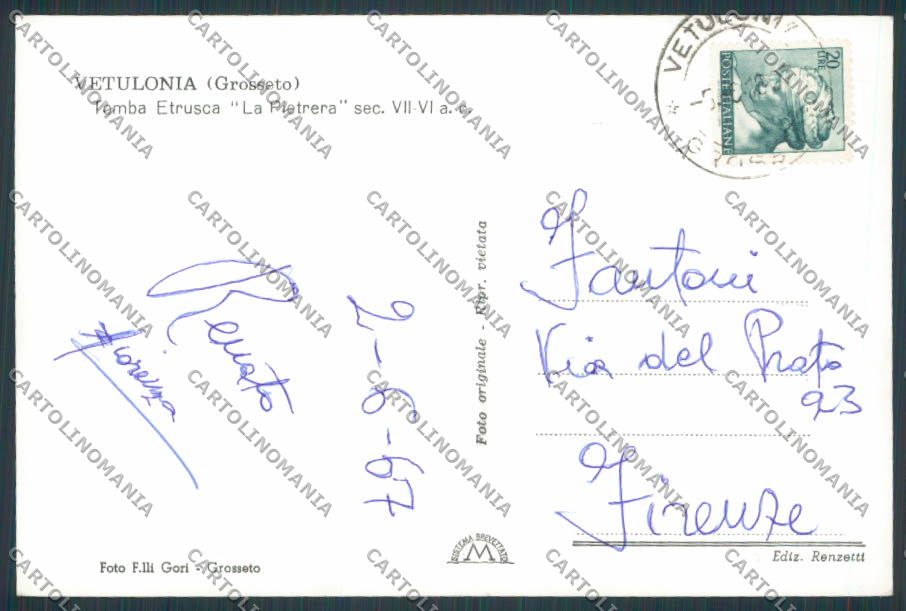 VETULONIA (Grosseto)
Tomba Etrusca "La Pietrera" sec. VII-VI a. C.
VETULONIA
20
LIRE
POSTE ITALIANE
Renato
Fiorenza
2-6-67
Foto originale - Ripr. vietata
Fantoni
Via del Prato
93
Firenze
Foto F.lli Gori - Grosseto
SISTEMA BREVETTATO
M
Ediz. Renzetti
CARTOLINOMANIA